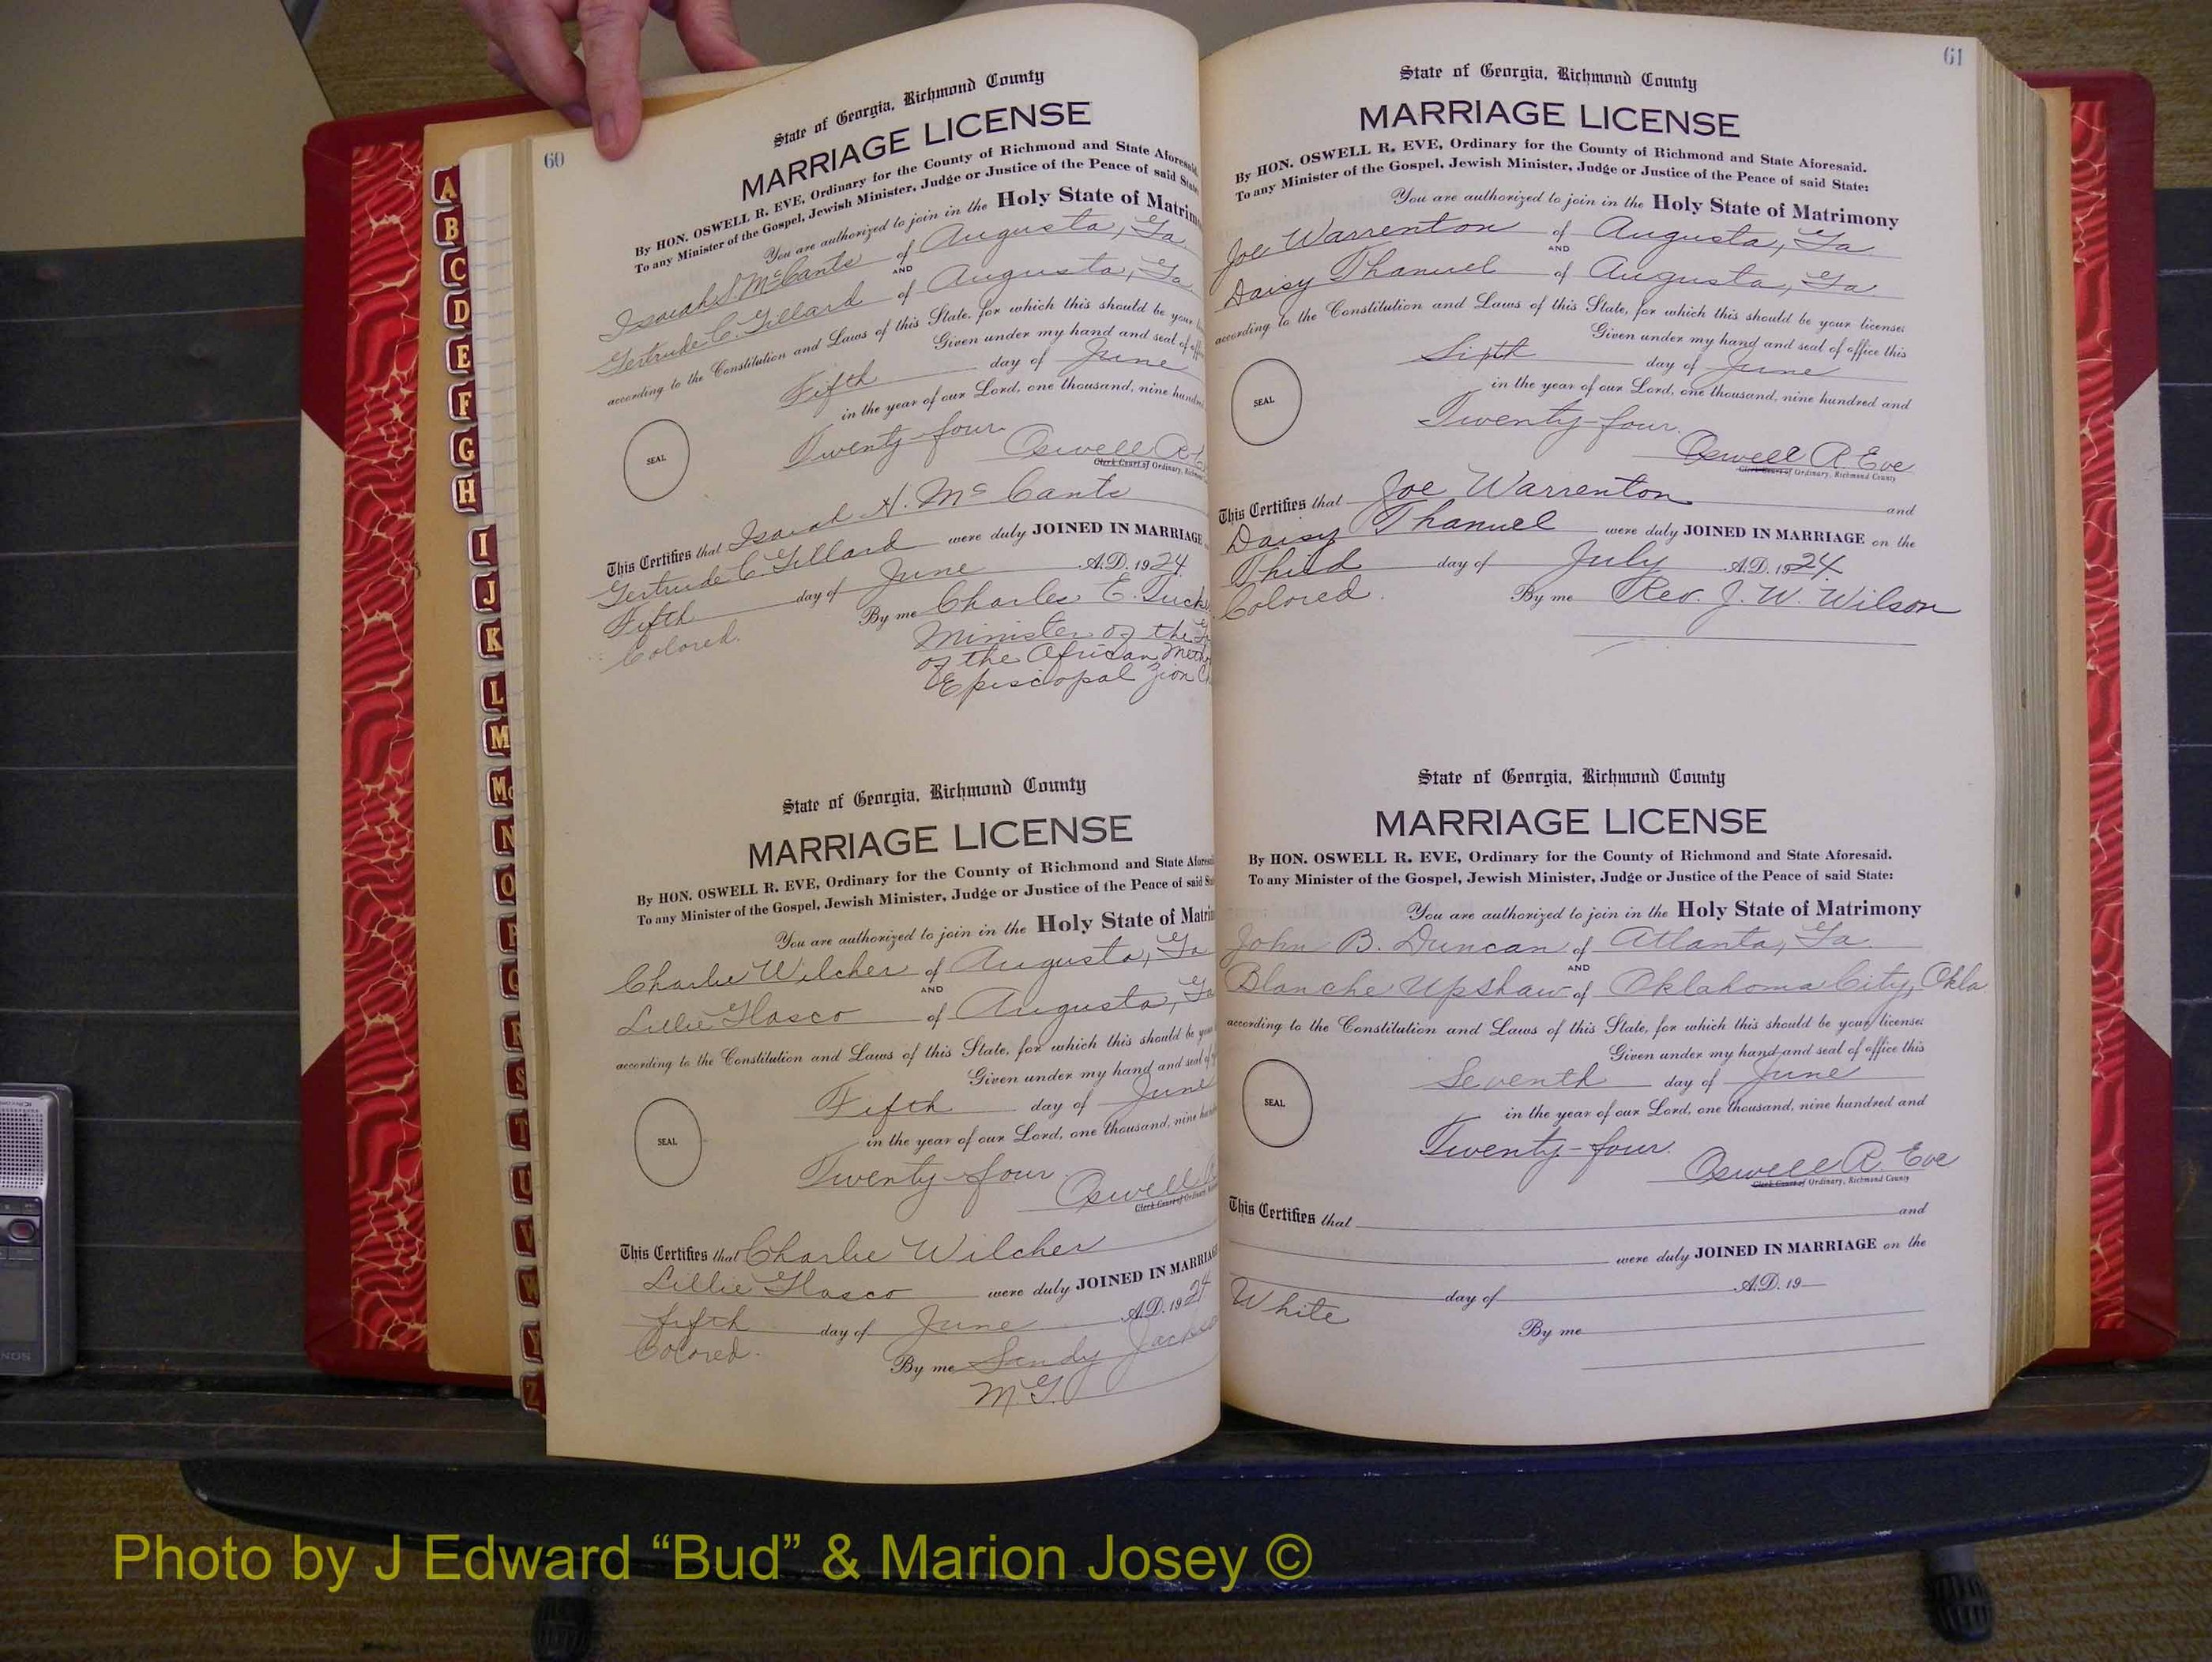 60
State of Georgia, Richmond County
MARRIAGE LICENSE
By HON. OSWELL R. EVE, Ordinary for the County of Richmond and State Aforesaid.
To any Minister of the Gospel, Jewish Minister, Judge or Justice of the Peace of said State
You are authorized to join in the Holy State of Matrim
Isaiah McCants of Augusta, Ga
AND
Gertrude C. Gillard of Augusta, Ga
according to the Constitution and Laws of this State, for which this should be your
Given under my hand and seal of
Fifth day of June
in the year of our Lord, one thousand, nine hundre
SEAL
Twenty-four
Oswell R
Clerk Court of Ordinary,
This Certifies that Isaiah H. McCants
Gertrude C. Gillard were duly JOINED IN MARRIAGE
Fifth day of June A.D. 1924
Colored. By me Charles E. Tuck
Minister of the
of the African Meth
Episcopal Zion
State of Georgia, Richmond County
MARRIAGE LICENSE
By HON. OSWELL R. EVE, Ordinary for the County of Richmond and State Afores
To any Minister of the Gospel, Jewish Minister, Judge or Justice of the Peace of said
You are authorized to join in the Holy State of Matri
Charlie Wilcher of Augusta, Ga
AND
Lillie Glasco of Augusta, Ga
according to the Constitution and Laws of this State, for which this should be your
Given under my hand and seal of
Fifth day of June
in the year of our Lord, one thousand, nine
SEAL
Twenty-four
Oswell
Clerk Court of Ordinary,
This Certifies that Charlie Wilcher
Lillie Glasco were duly JOINED IN MARRIAGE
fifth day of June A.D. 1924
Colored. By me Sandy Jackso
M.G.
61
State of Georgia, Richmond County
MARRIAGE LICENSE
By HON. OSWELL R. EVE, Ordinary for the County of Richmond and State Aforesaid.
To any Minister of the Gospel, Jewish Minister, Judge or Justice of the Peace of said State:
You are authorized to join in the Holy State of Matrimony
Joe Warrenton of Augusta, Ga
AND
Daisy Thanuel of Augusta, Ga
according to the Constitution and Laws of this State, for which this should be your license:
Given under my hand and seal of office this
Sixth day of June
in the year of our Lord, one thousand, nine hundred and
SEAL
Twenty-four.
Oswell R. Eve
Clerk Court of Ordinary, Richmond County
This Certifies that Joe Warrenton and
Daisy Thanuel were duly JOINED IN MARRIAGE on the
Third day of July A.D. 1924
Colored. By me Rev. J. W. Wilson
State of Georgia, Richmond County
MARRIAGE LICENSE
By HON. OSWELL R. EVE, Ordinary for the County of Richmond and State Aforesaid.
To any Minister of the Gospel, Jewish Minister, Judge or Justice of the Peace of said State:
You are authorized to join in the Holy State of Matrimony
John B. Duncan of Atlanta, Ga
AND
Blanche Upshaw of Oklahoma City, Okla
according to the Constitution and Laws of this State, for which this should be your license:
Given under my hand and seal of office this
Seventh day of June
in the year of our Lord, one thousand, nine hundred and
SEAL
Twenty-four.
Oswell R. Eve
Clerk Court of Ordinary, Richmond County
This Certifies that and
were duly JOINED IN MARRIAGE on the
White day of A.D. 19
By me
A
B
C
D
E
F
G
H
I
J
K
L
M
Mc
N
O
P
Q
R
S
T
U
V
W
Y
Z
Photo by J Edward “Bud” & Marion Josey ©